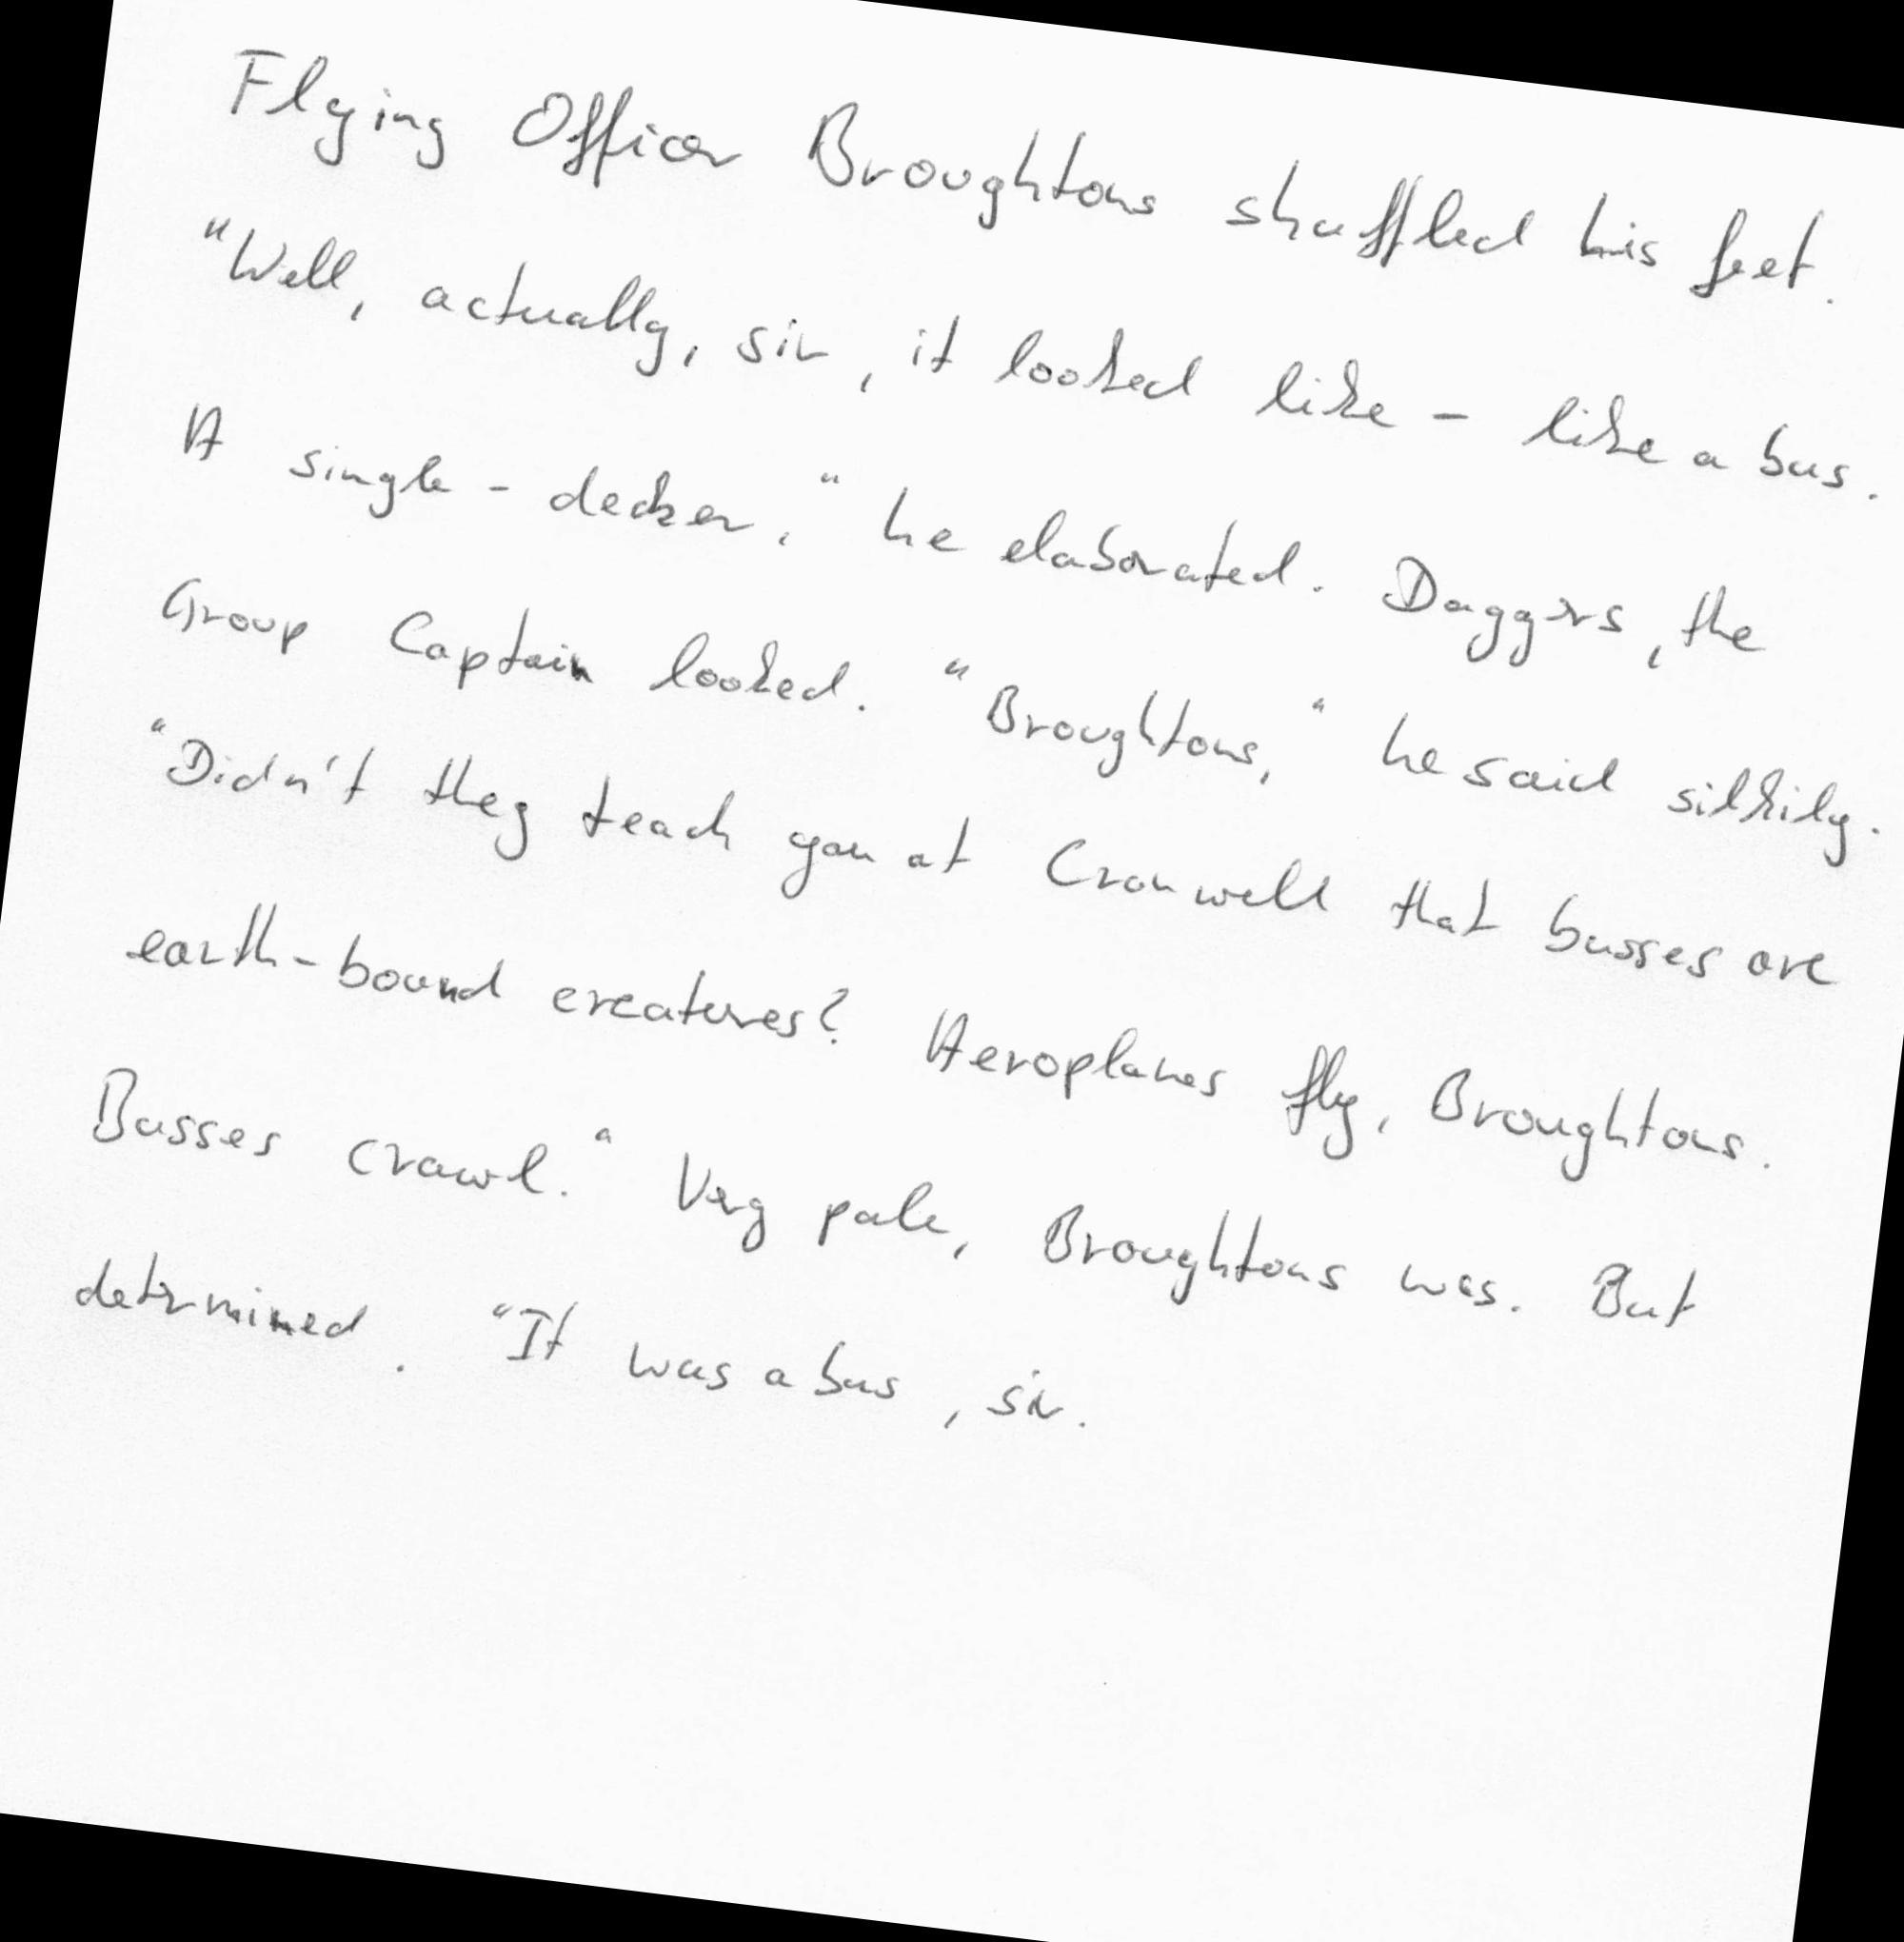 Flying Officer Broughtons shuffled his feet.
"Well, actually, sir, it looked like - like a bus.
A single-decker," he elaborated. Daggers, the
Group Captain looked. "Broughtons," he said silkily.
"Didn't they teach you at Cronwell that busses are
earth-bound creatures? Aeroplanes fly, Broughtons.
Busses crawl." Very pale, Broughtons was. But
determined. "It was a bus, sir.